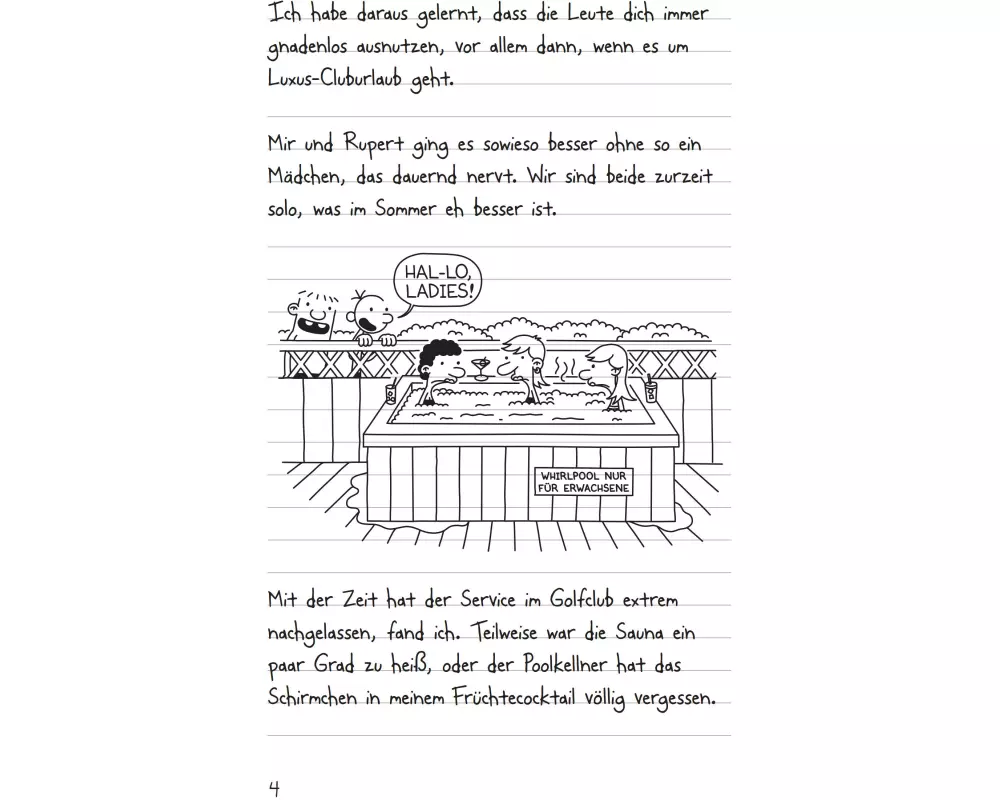 Ich habe daraus gelernt, dass die Leute dich immer
gnadenlos ausnutzen, vor allem dann, wenn es um
Luxus-Cluburlaub geht.
Mir und Rupert ging es sowieso besser ohne so ein
Mädchen, das dauernd nervt. Wir sind beide zurzeit
solo, was im Sommer eh besser ist.
HAL-LO,
LADIES!
WHIRLPOOL NUR
FÜR ERWACHSENE
Mit der Zeit hat der Service im Golfclub extrem
nachgelassen, fand ich. Teilweise war die Sauna ein
paar Grad zu heiß, oder der Poolkellner hat das
Schirmchen in meinem Früchtecocktail völlig vergessen.
4